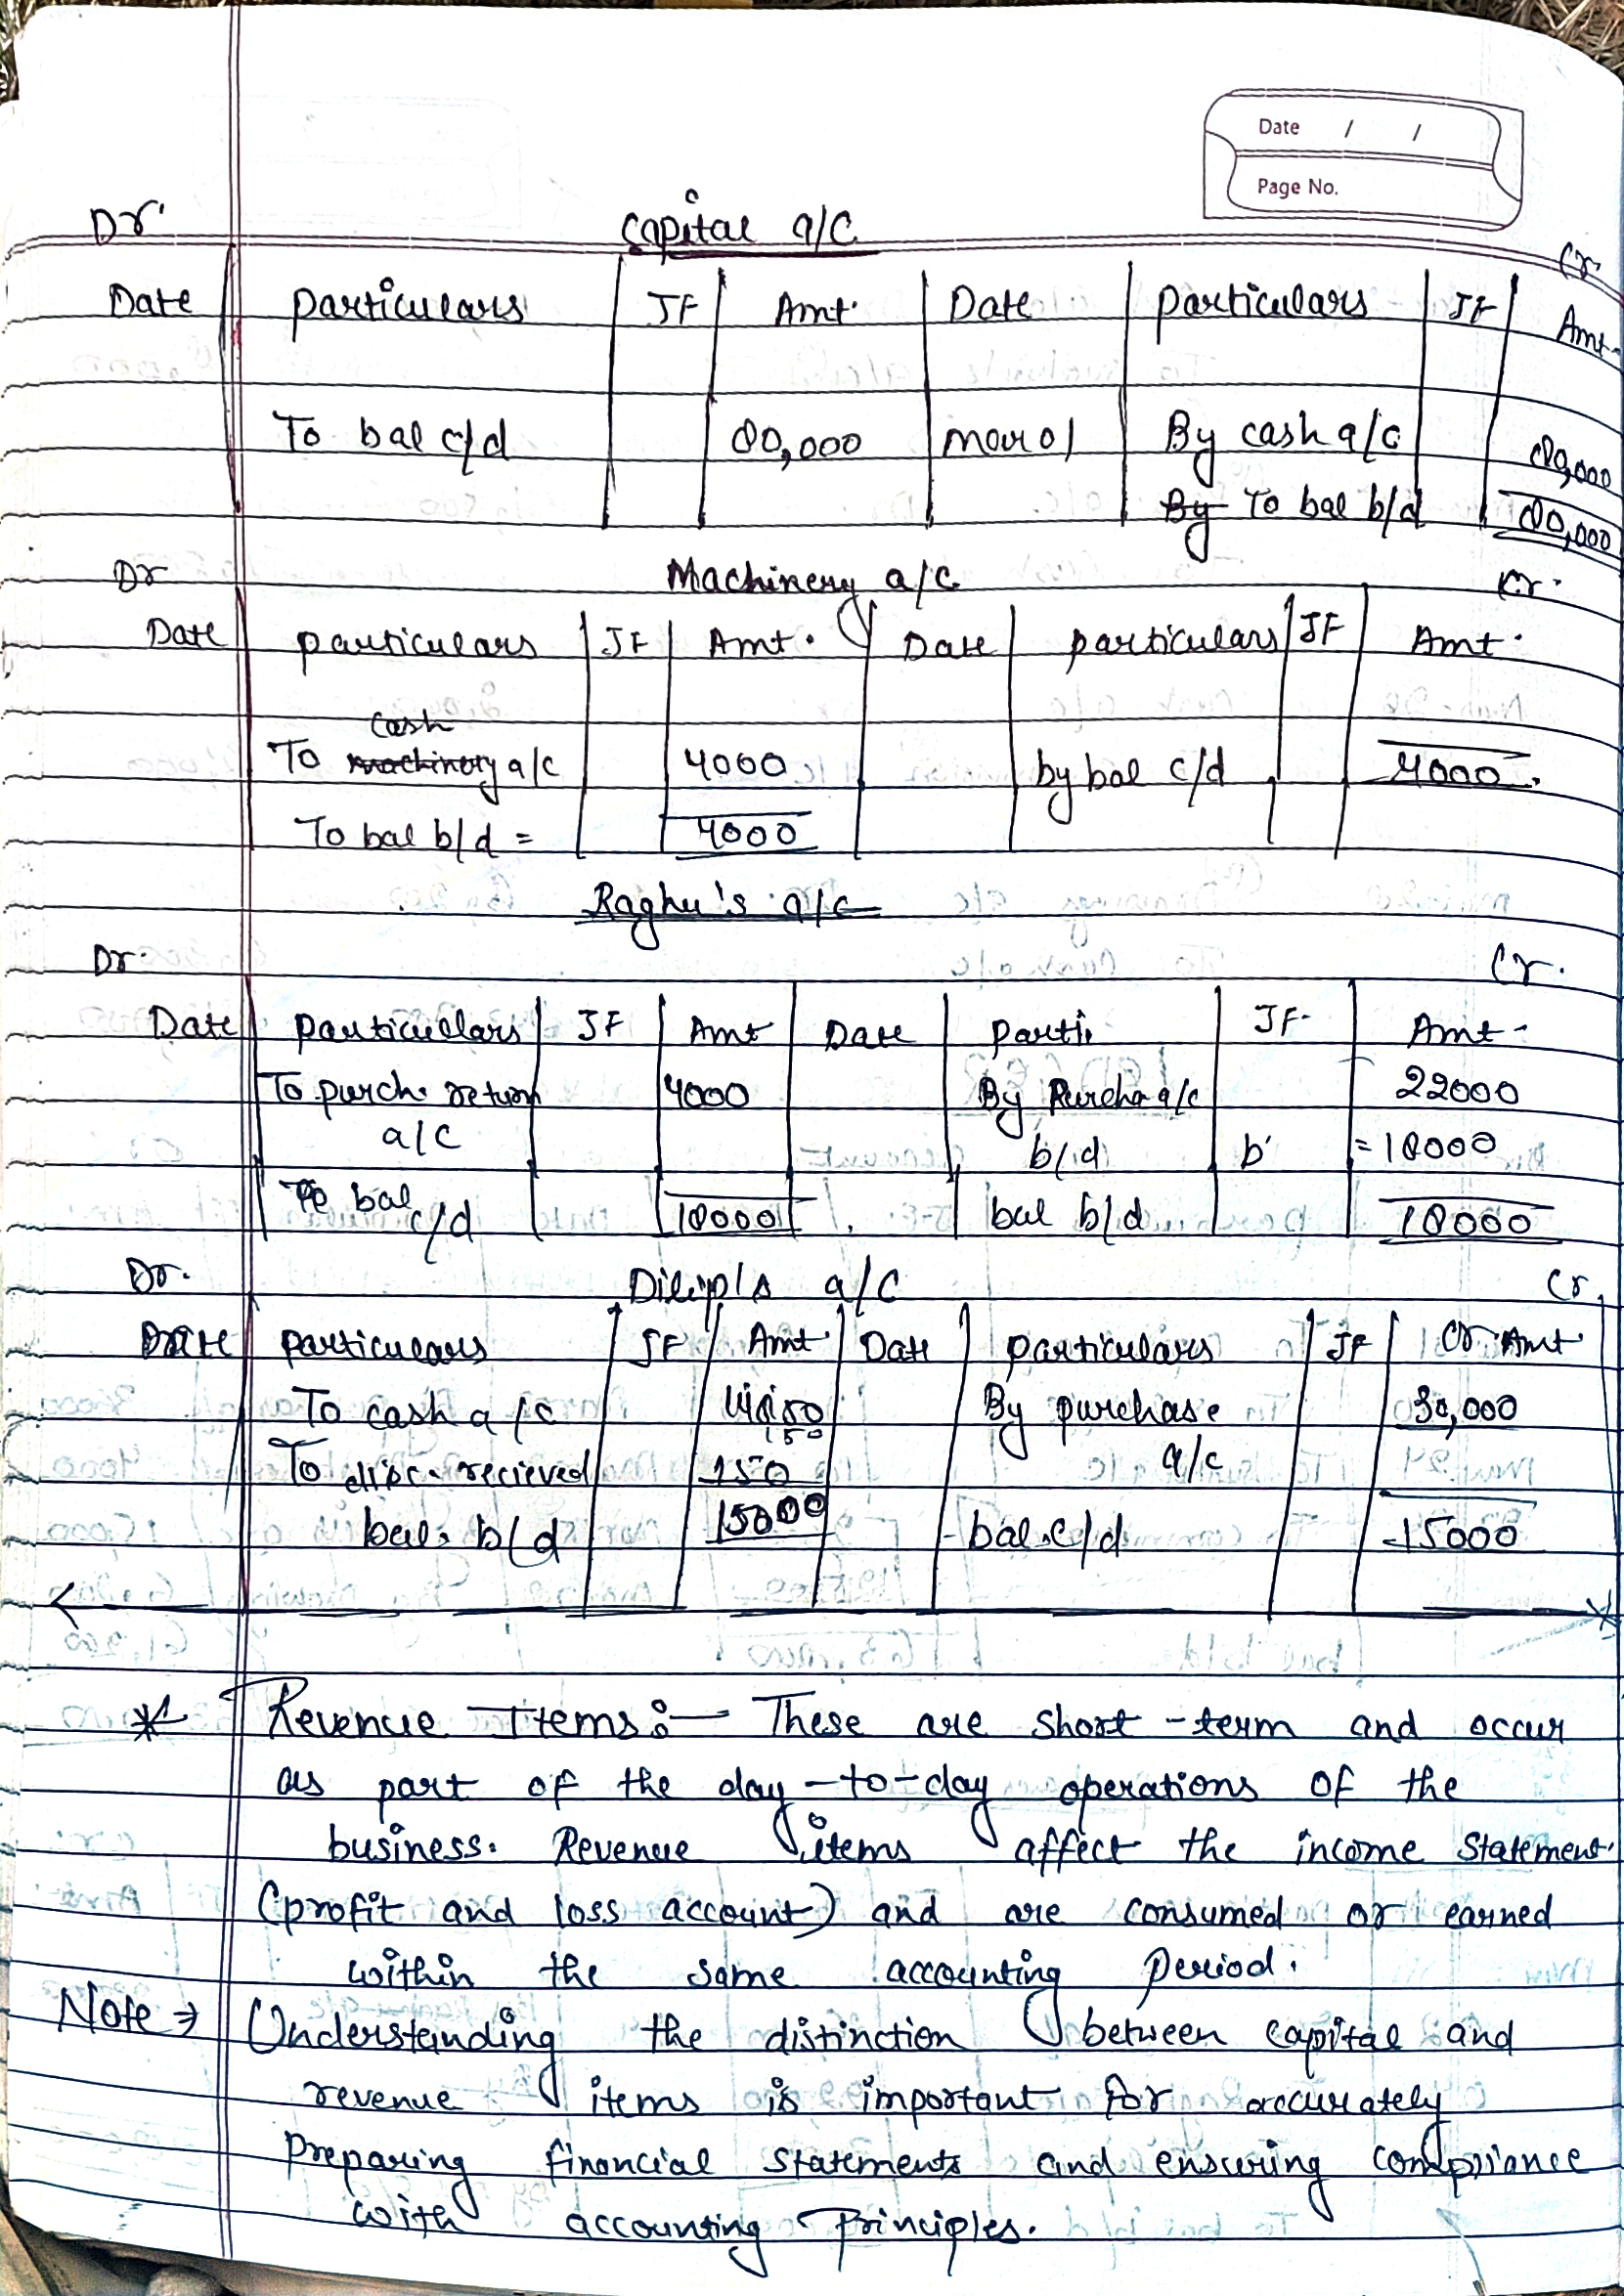 Date / /
Page No.
Dr. Capital a/c Cr.
Date Particulars JF Amt. Date Particulars JF Amt.
To bal c/d 80,000 Mar 01 By cash a/c 80,000
By To bal b/d 80,000
Dr Machinery a/c Cr.
Date Particulars JF Amt. Date Particulars JF Amt.
cash
To machinery a/c 4000 by bal c/d 4000.
To bal b/d = 4000
Raghu's a/c
Dr. Cr.
Date Particullars JF Amt Date Parti JF. Amt.
To purch. return 4000 By Purcha a/c 22000
a/c b/d b' = 18000
To bal c/d 18000 bal b/d 18000
Dr. Dilip's a/c Cr.
Date Particulars JF Amt Date Particulars JF Cr. Amt.
To cash a/c By purchase 30,000
150
To disc. recieved 150 a/c
bal. b/d 15000 bal. c/d 15000
* Revenue Items :- These are short-term and occur
as part of the day-to-day operations of the
business. Revenue items affect the income statement
(profit and loss account) and are consumed or earned
within the same accounting period.
Note → Understanding the distinction between capital and
revenue items is important for accurately
preparing financial statements and ensuring compliance
with accounting principles.